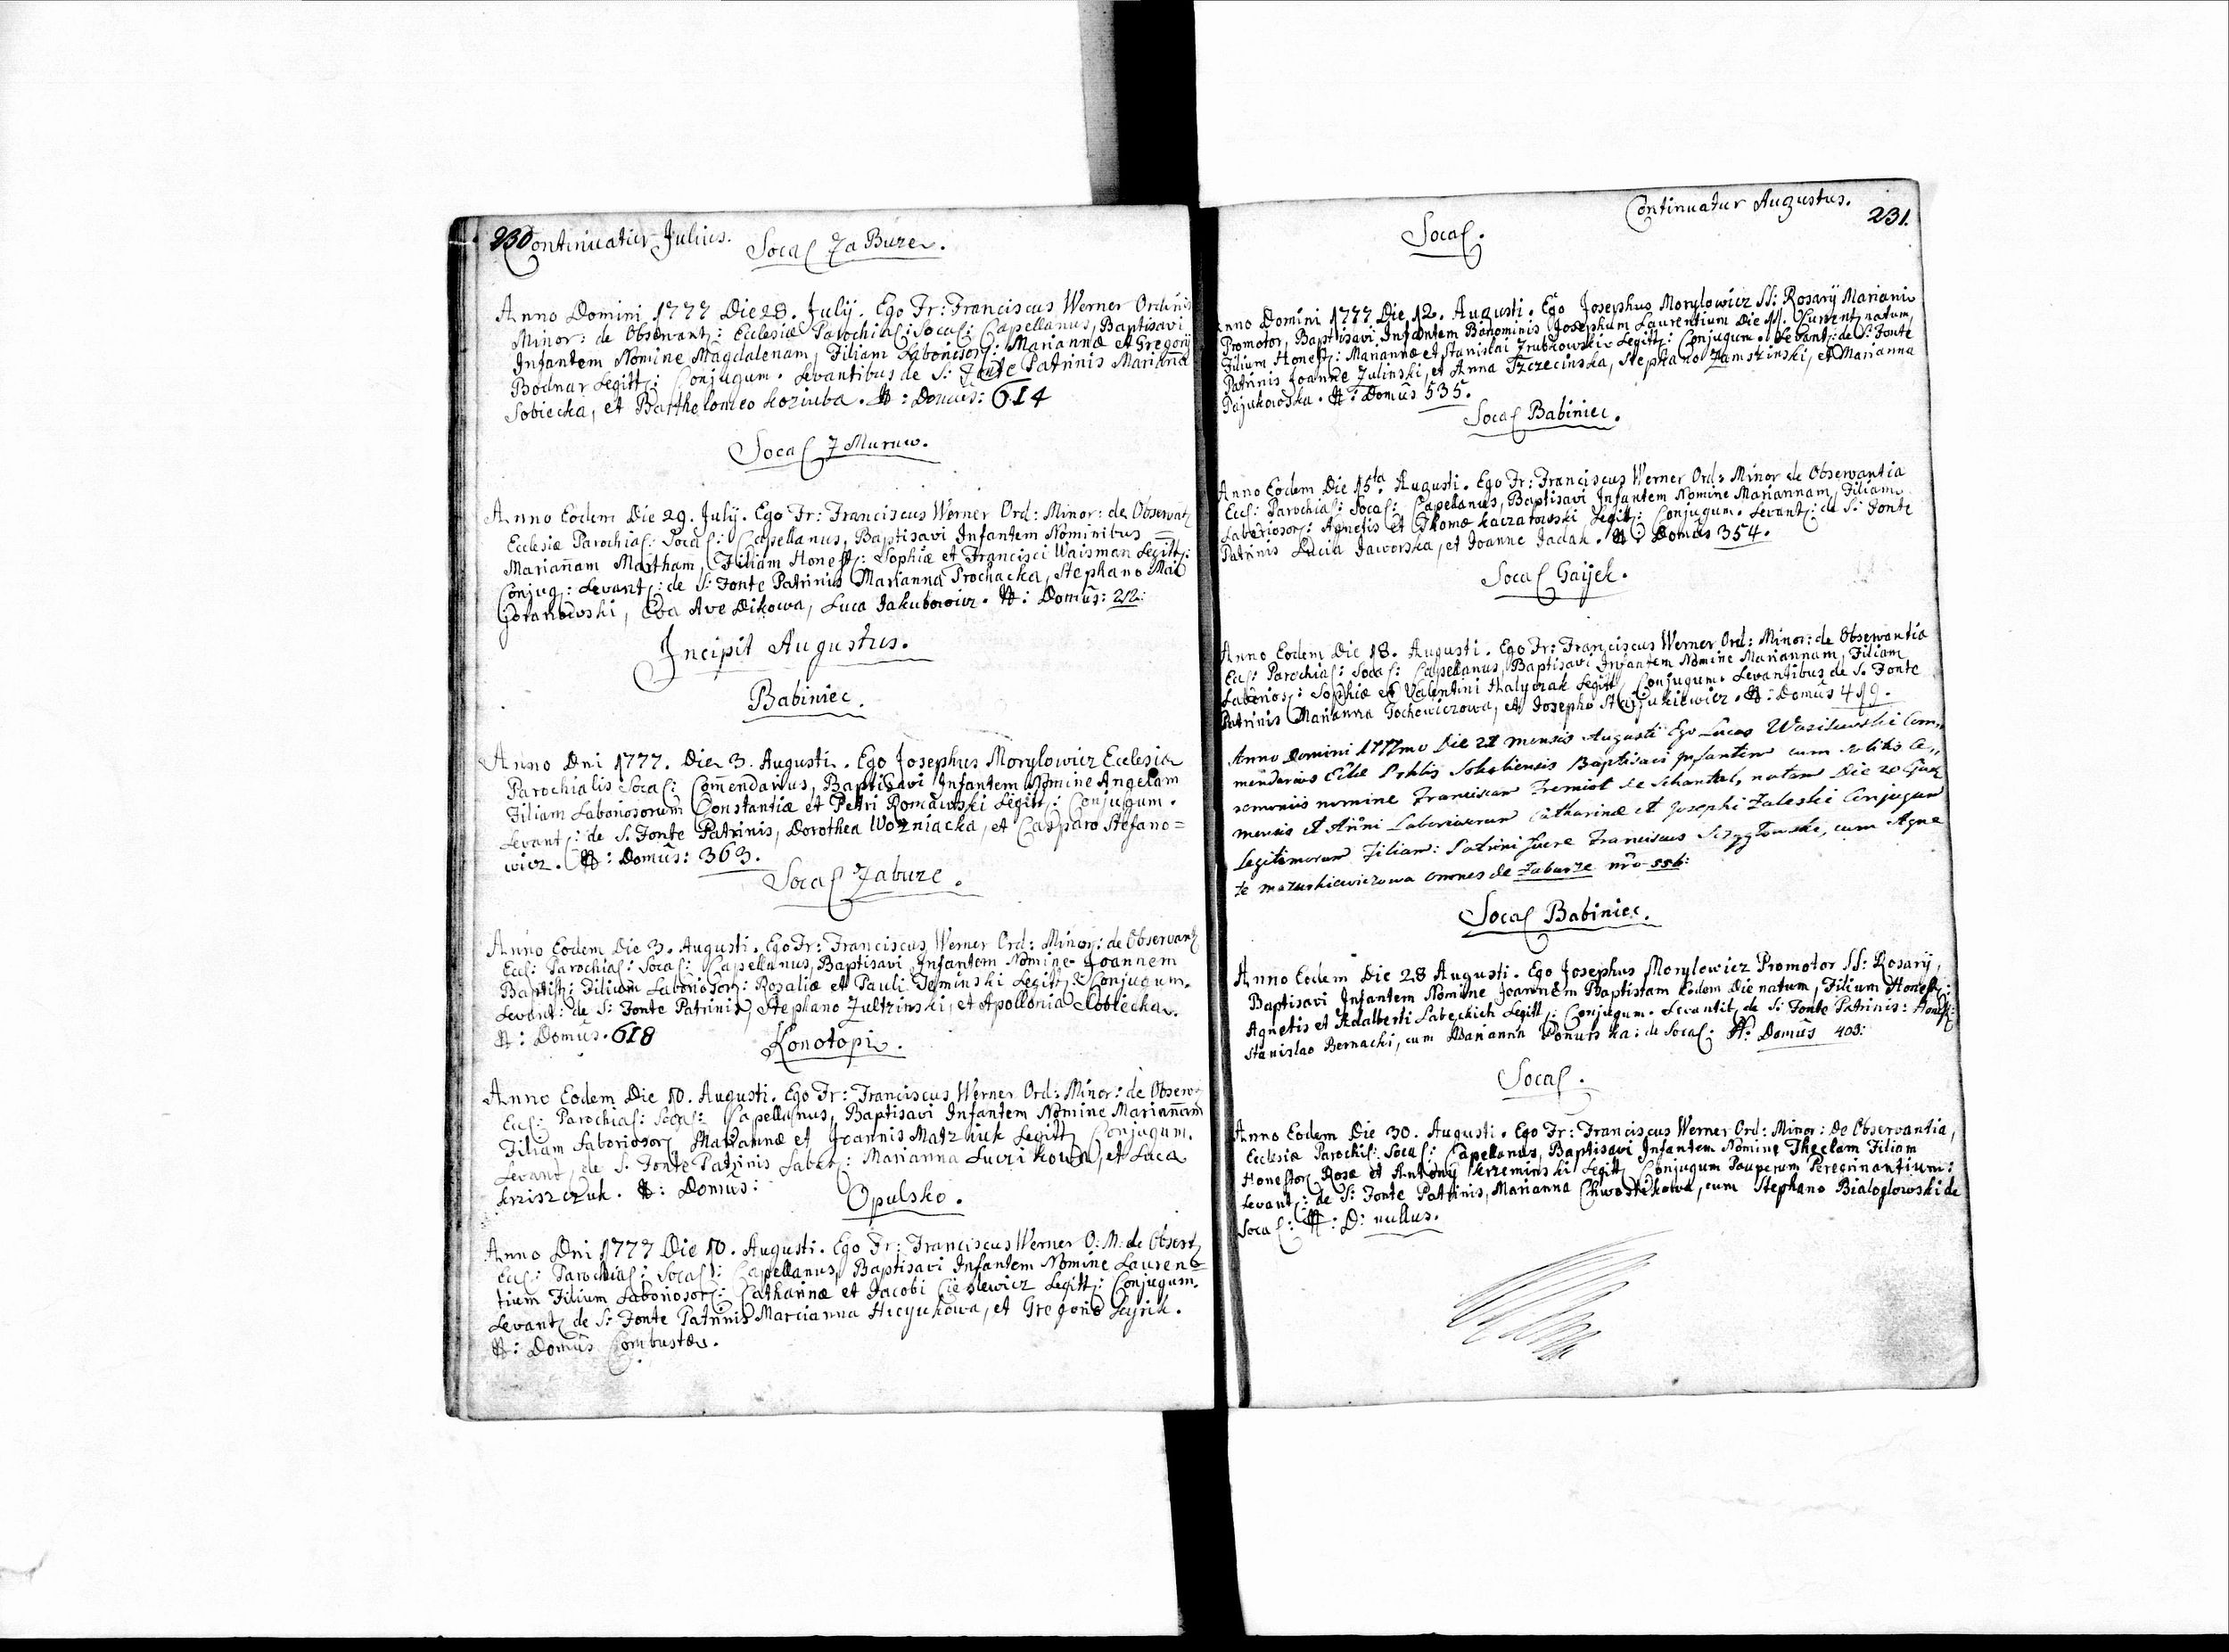 230
Continuatur Julius.
Socal Za Buze.
Anno Domini 1777 Die 28. July. Ego Fr: Franciscus Werner Ordinis
Minor: de Observant: Ecclesiæ Parochial: Socal: Capellanus, Baptisavi
Infantem Nomine Magdalenam, Filiam Laborisor: Mariannæ et Gregorij
Bodnar Legitt: Conjugum. Levantibus de S: Fonte Patrinis Marianna
Sobiecka, et Bartholomeo Koziuba. N: Domus: 614
Socal Z Muruw.
Anno Eodem Die 29. July. Ego Fr: Franciscus Werner Ord: Minor: de Observat
Ecclesiæ Parochial: Socal: Capellanus, Baptisavi Infantem Nominibus
Mariañam Martham, Filiam Honest: Sophiæ et Francisci Waisman Legitt:
Conjug: Levant: de S: Fonte Patrinis Marianna Prochacka, Stephano Mal
Eva Ave Dikowa, Luca Jakubowicz. N: Domûs: 212:
Incipit Augustus.
Babiniec.
Anno Dni 1777. Die 3. Augusti. Ego Josephus Morylowicz Ecclesiæ
Parochialis Socal: Com̃endarius, Baptisavi Infantem Nomine Angelam
Filiam Laboriosorum Constantiæ et Petri Romawski Legitt: Conjugum.
Levant: de S. Fonte Patrinis, Dorothea Wozniacka, et Casparo Stefano=
wicz. N: Domûs: 363.
Socal Zabuze.
Anno Eodem Die 3. Augusti. Ego Fr: Franciscus Werner Ord: Minor: de Observant
Ecl: Parochial: Socal: Capellanus, Baptisavi Infantem Nomine Joannem
Baptist: Filium Laboriosor: Rosaliæ et Pauli Legitt: Conjugum.
Levant: de S: Fonte Patrinis, Stephano Zultzinski, et Apollonia Sobiecka.
N: Domûs. 618
Konotopi.
Anno Eodem Die 10. Augusti. Ego Fr: Franciscus Werner Ord: Minor: de Observ
Ecl: Parochial: Socal: Capellanus, Baptisavi Infantem Nomine Mariañam
Filiam Laboriosor Mariannæ et Joannis Matzhiuk Legitt Conjugum.
Levant, de S. Fonte Patrinis Labor: Marianna et Luca
Kriszczuk. N: Domûs:
Opulsko.
Anno Dni 1777 Die 10. Augusti. Ego Fr: Franciscus Werner O: M: de Observ
Ecl: Parochial: Socal: Capellanus, Baptisavi Infantem Nomine Lauren=
tium Filium Laboriosor: Catharinæ et Jacobi Cieslewicz Legitt: Conjugum.
Levant de S: Fonte Patrinis Marcianna Hicyukowa, et Gregorio
N: Domûs Combustæ.
Continuatur Augustus.
231.
Socal.
Anno Domini 1777 Die 12. Augusti. Ego Josephus Morylowicz SS: Rosarÿ Mariani
Promotor, Baptisavi Infantem Binominis Josephum Laurentium Die 11. Current natum,
Filium Honest: Mariannæ et Stanislai Zrubkowski Legitt: Conjugum. Levant: de S: Fonte
Patrinis Joanne Zulinski, et Anna Szczecinska, Stephano Zamszinski, et Marianna
Pajukowska. N: Domûs 535.
Socal Babiniec.
Anno Eodem Die 15ta Augusti. Ego Fr: Franciscus Werner Ord: Minor de Observantia
Ecl: Parochial: Socal: Capellanus, Baptisavi Infantem Nomine Mariannam, Filiam
Laboriosor: Agnetis et Thomæ Kaczatowski Legitt: Conjugum. Levant: de S: Fonte
Patrinis Lucia Jaworska, et Joanne Jadak. N: Domûs 354.
Socal Gaijek.
Anno Eodem Die 18. Augusti. Ego Fr: Franciscus Werner Ord: Minor: de Observantia
Ecl: Parochial: Socal: Capellanus, Baptisavi Infantem Nomine Mariannam, Filiam
Laborios: Sophiæ et Valentini Halyczak Legitt Conjugum. Levantibus de S. Fonte
Patrinis Marianna Tochowiczowa, et Josepho N: Domûs 419.
Anno Domini 1777mo Die 21 mensis Augusti Ego Lucas Wasilewski Com,,
mendarius Ecclæ Pchlis Sokaliensis Baptisavi Infantem cum solitis Ce,,
remoniis nomine Franciscam Fremiot de Schantal, natam Die 20 Ejusd
mensis et Anni Laboriosorum Catharinæ et Josephi Zaleski Conjugum
Legitimorum Filiam: Patrini fuere Franciscus cum Agne
te Mazurkiewiczowa omnes de Zaburze nro 556:
Socal Babiniec.
Anno Eodem Die 28 Augusti. Ego Josephus Morylowicz Promotor SS: Rosarÿ,
Baptisavi Infantem Nomine Joannem Baptistam Eodem Die natum, Filium Honest:
Agnetis et Adalberti Labeckich Legitt: Conjugum. Levantib de S: Fonte Patrinis: Honest:
Stanislao Bernacki, cum Marianna de Socal: N: Domûs 403:
Socal.
Anno Eodem Die 30. Augusti. Ego Fr: Franciscus Werner Ord: Minor: De Observantia,
Ecclesiæ Parochil: Socal: Capellanus, Baptisavi Infantem Nomine Theclam Filiam
Honestor Rosæ et Antonÿ Krzeminski Legitt Conjugum Pauperum Peregrinantium:
Levant: de S: Fonte Patrinis, Marianna Chwostikowa, cum Stephano Bialoglowski de
Socal: N: D: nullus.